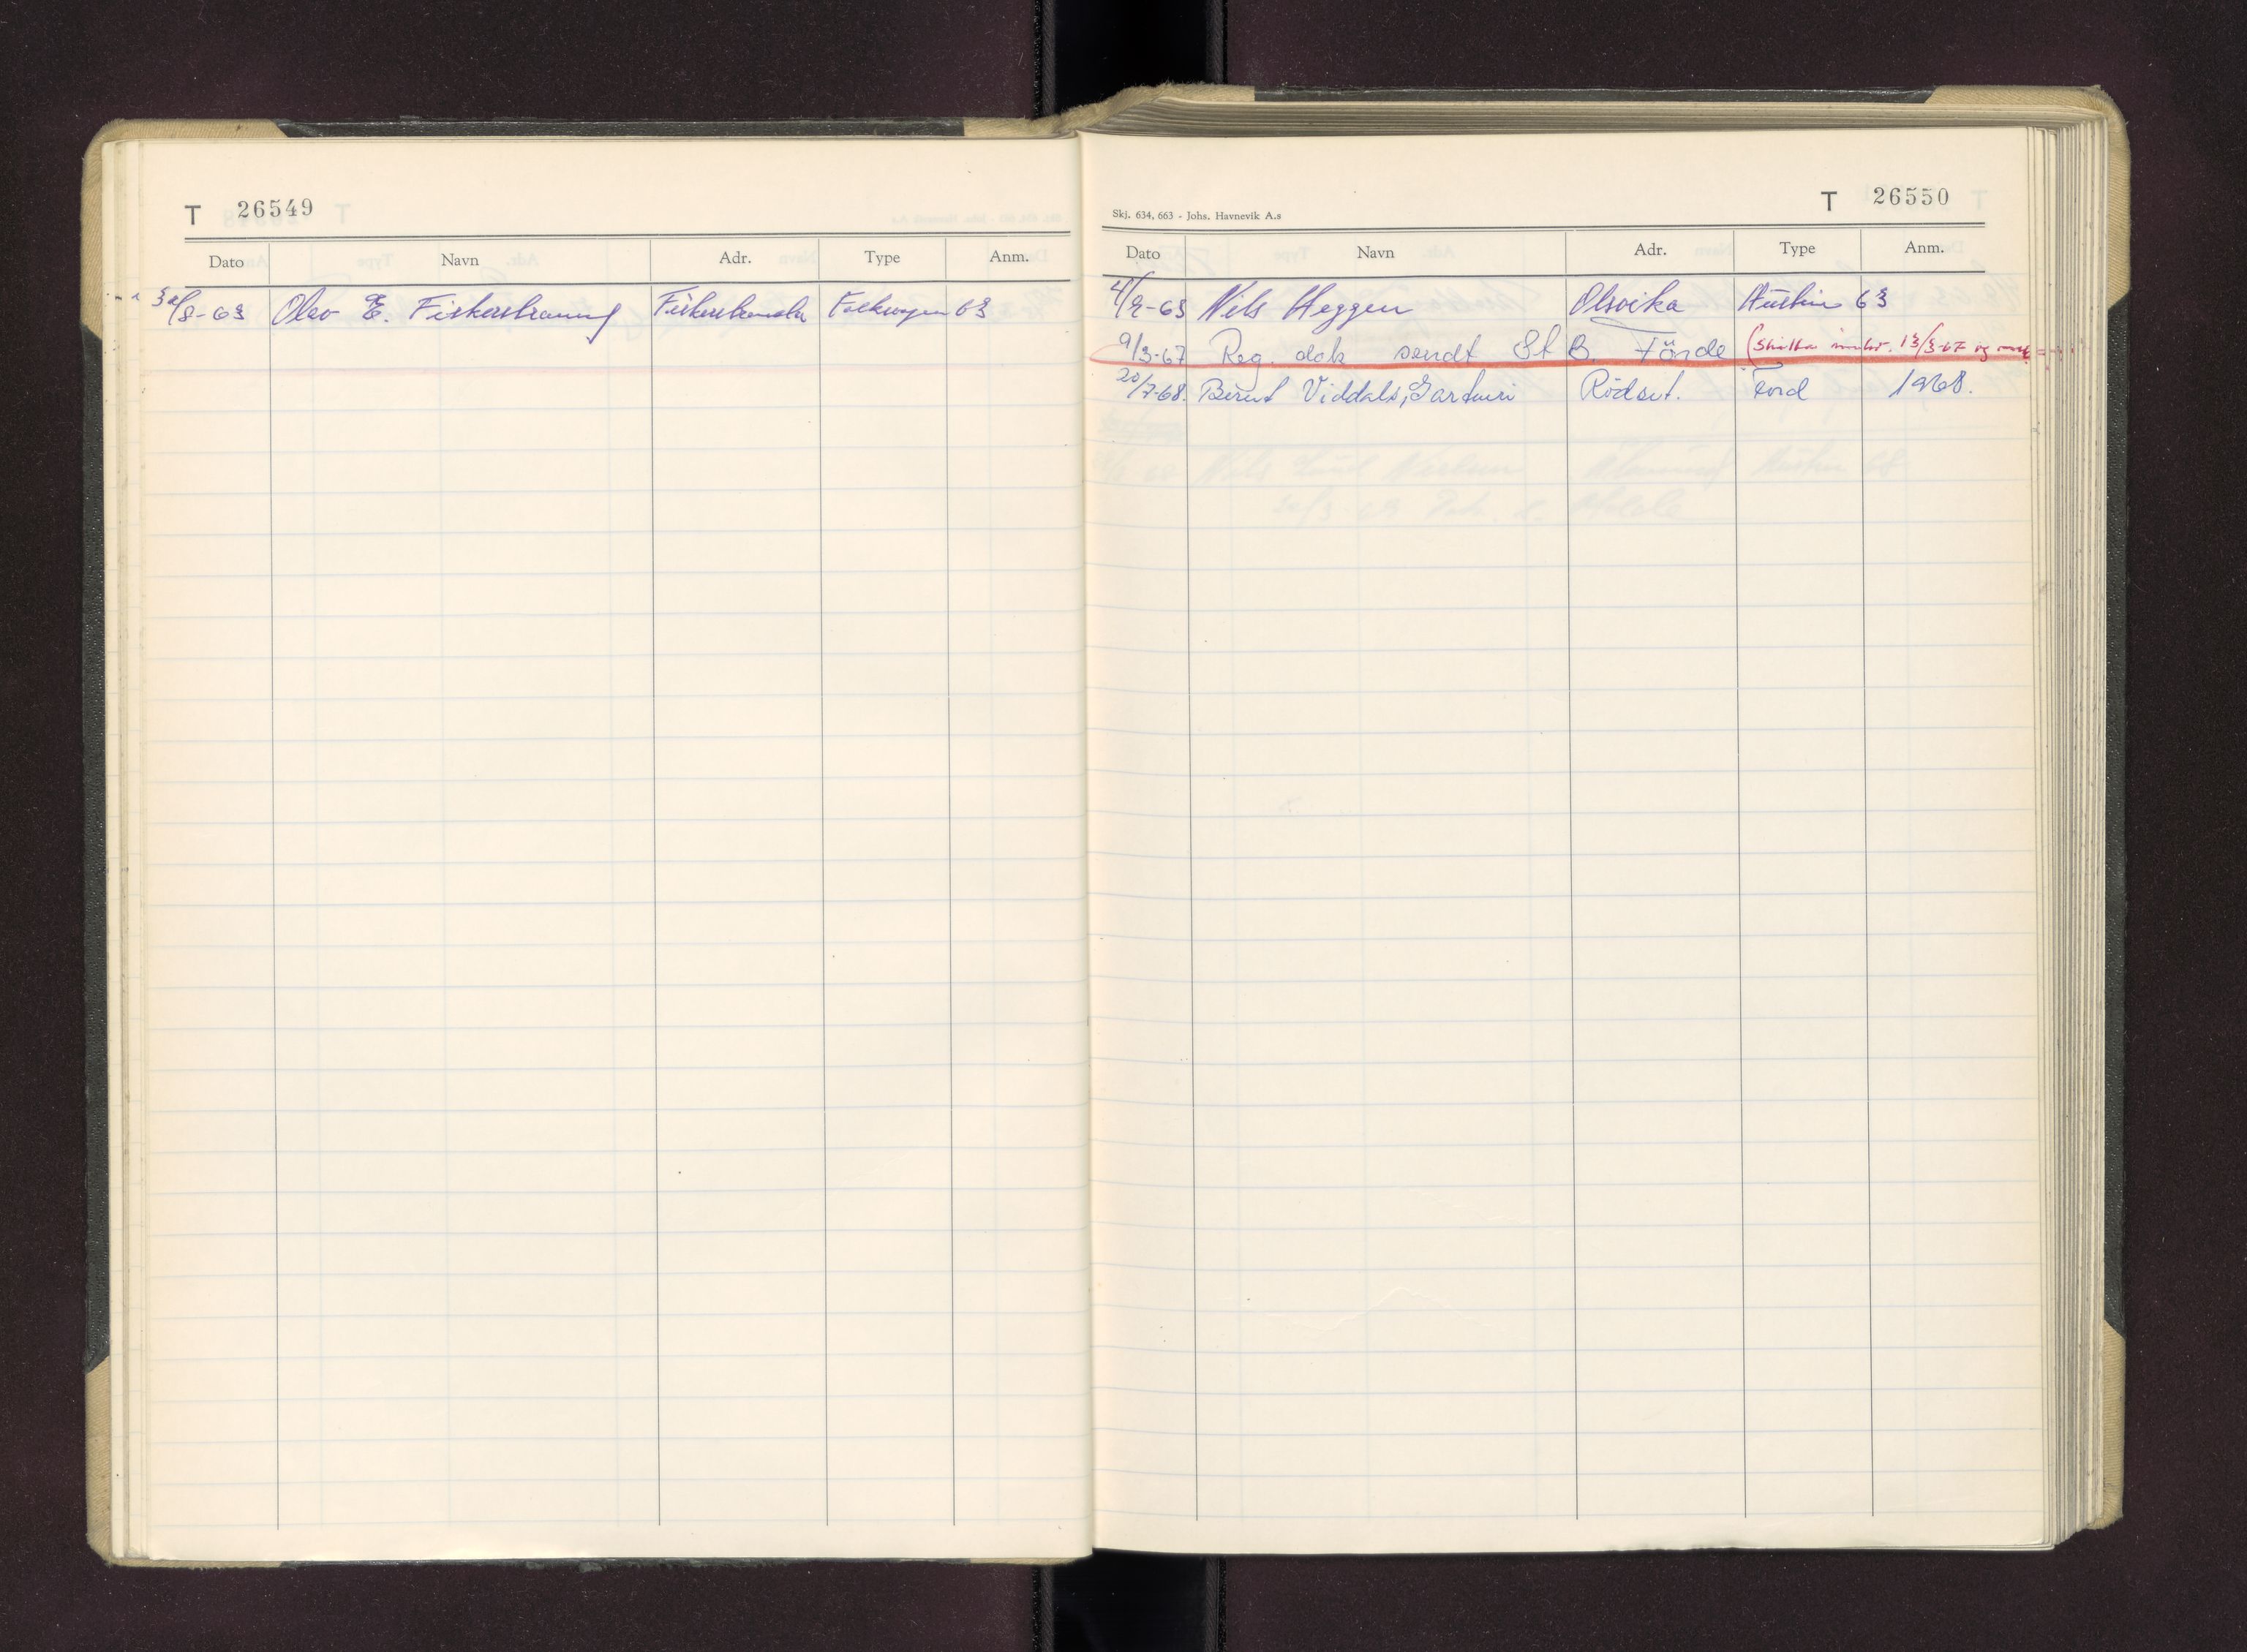 T 26549
Dato Navn Adr. Type Anm.
30/8-63 Olav E. Fiskerstrand Fiskerstrand Folkvogn 63
Skj. 634, 663 - Johs. Havnevik A.s
T 26550
Dato Navn Adr. Type Anm.
4/9-63 Nils Heggen Olsvika Austin 63
9/3-67 Reg. dok sendt St B. Förde (Skilta innlev. 13/3-67 og
20/7-68. Bernt Viddals, Rödset. Ford 1968.